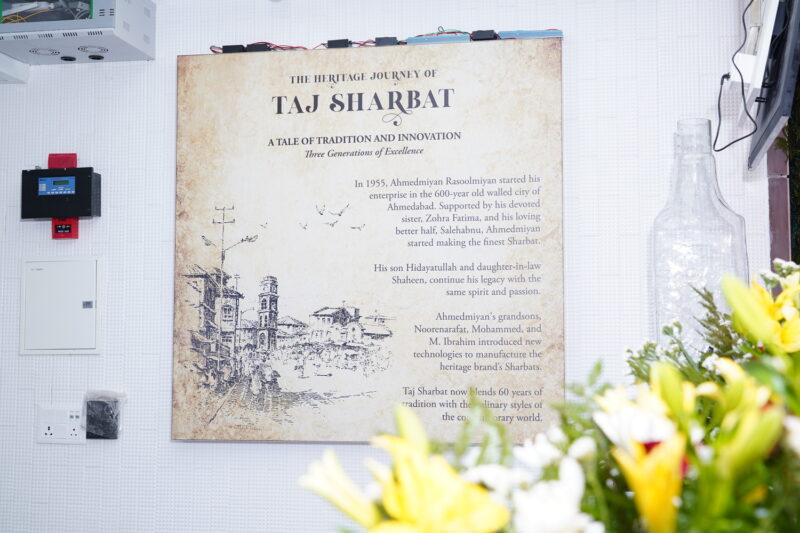 THE HERITAGE JOURNEY OF
TAJ SHARBAT
A TALE OF TRADITION AND INNOVATION
Three Generations of Excellence
In 1955, Ahmedmiyan Rasoolmiyan started his
enterprise in the 600-year old walled city of
Ahmedabad. Supported by his devoted
sister, Zohra Fatima, and his loving
better half, Salehabnu, Ahmedmiyan
started making the finest Sharbat.
His son Hidayatullah and daughter-in-law
Shaheen, continue his legacy with the
same spirit and passion.
Ahmedmiyan's grandsons,
Noorenarafat, Mohammed, and
M. Ibrahim introduced new
technologies to manufacture the
heritage brand's Sharbats.
Taj Sharbat now blends 60 years of
tradition with the culinary styles of
the contemporary world.